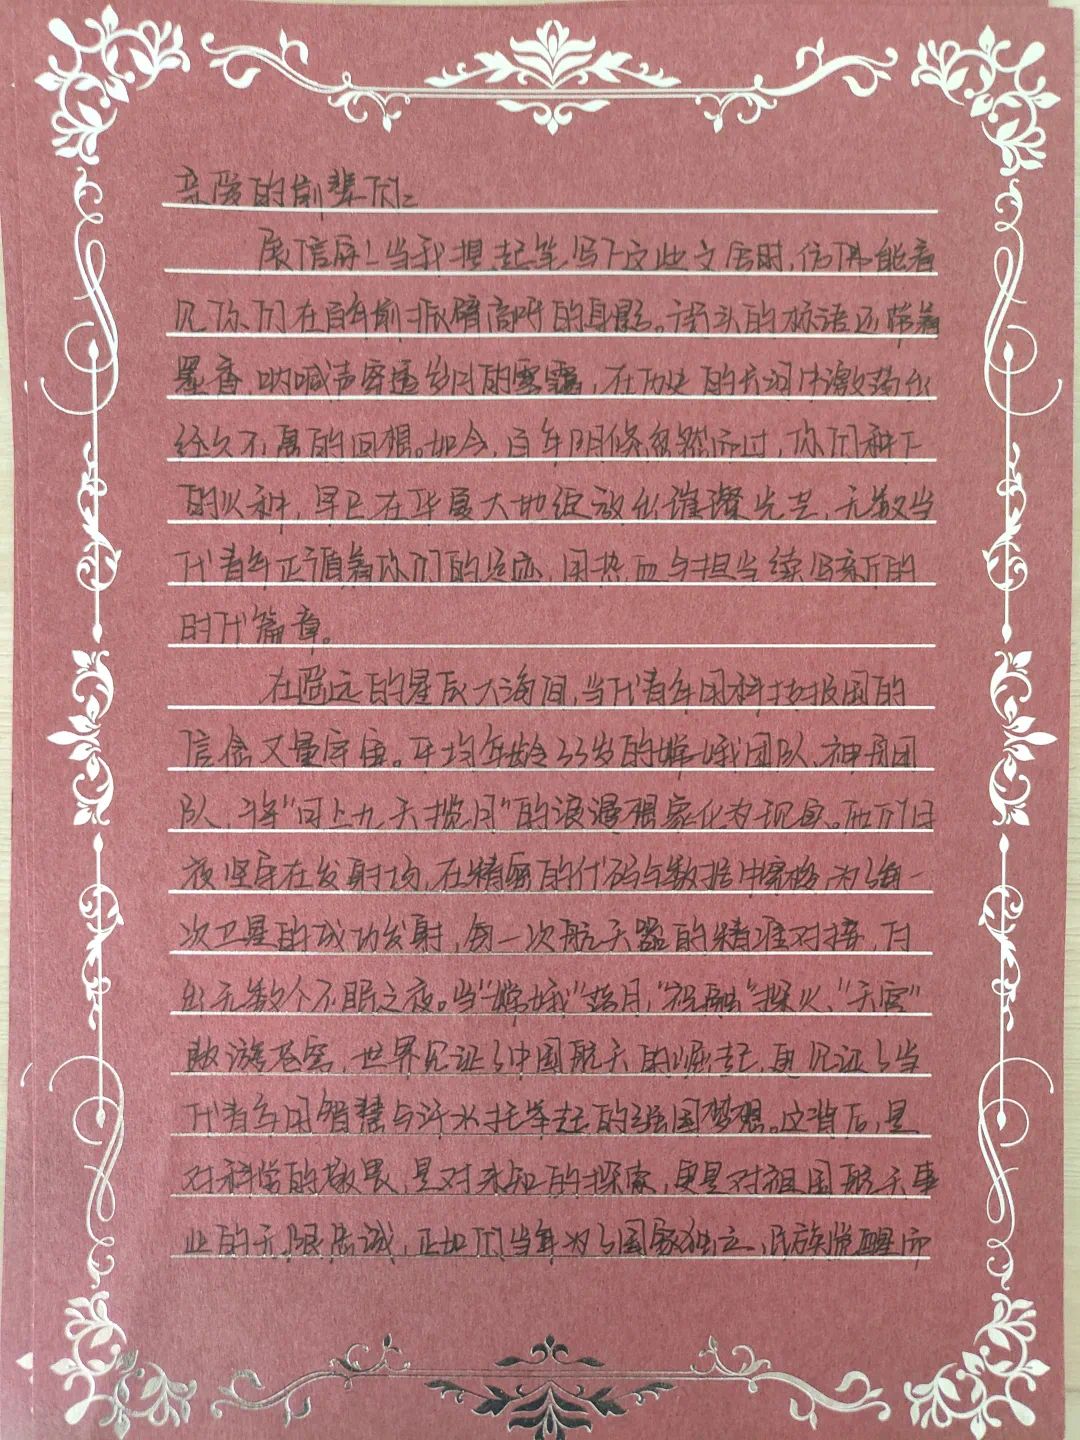 亲爱的前辈们：
展信舒！当我提起笔写下这些文字时，仿佛能看
见你们在百年前振臂高呼的身影。街头的标语还带着
墨香，呐喊声穿透岁月的云雾，在历史的长河中激荡出
经久不息的回想。如今，百年时光倏忽而过，你们种下
的火种，早已在华夏大地绽放出璀璨光芒，无数当
代青年正循着你们的足迹，用热血与担当续写新的
时代篇章。
在遥远的星辰大海间，当代青年用科技报国的
信念丈量宇宙。平均年龄33岁的嫦娥团队、神舟团
队，将“可上九天揽月”的浪漫想象化为现实。他们日
夜坚守在发射场，在精密的代码与数据中穿梭，为了每一
次卫星的成功发射，每一次航天器的精准对接，付
出无数个不眠之夜。当“嫦娥”揽月，“祝融”探火、“天宫”
遨游苍穹，世界见证了中国航天的崛起，更见证了当
代青年用智慧与汗水托举起的强国梦想。这背后，是
对科学的敬畏，是对未知的探索，更是对祖国航天事
业的无限忠诚，正如你们当年为了国家独立、民族觉醒而